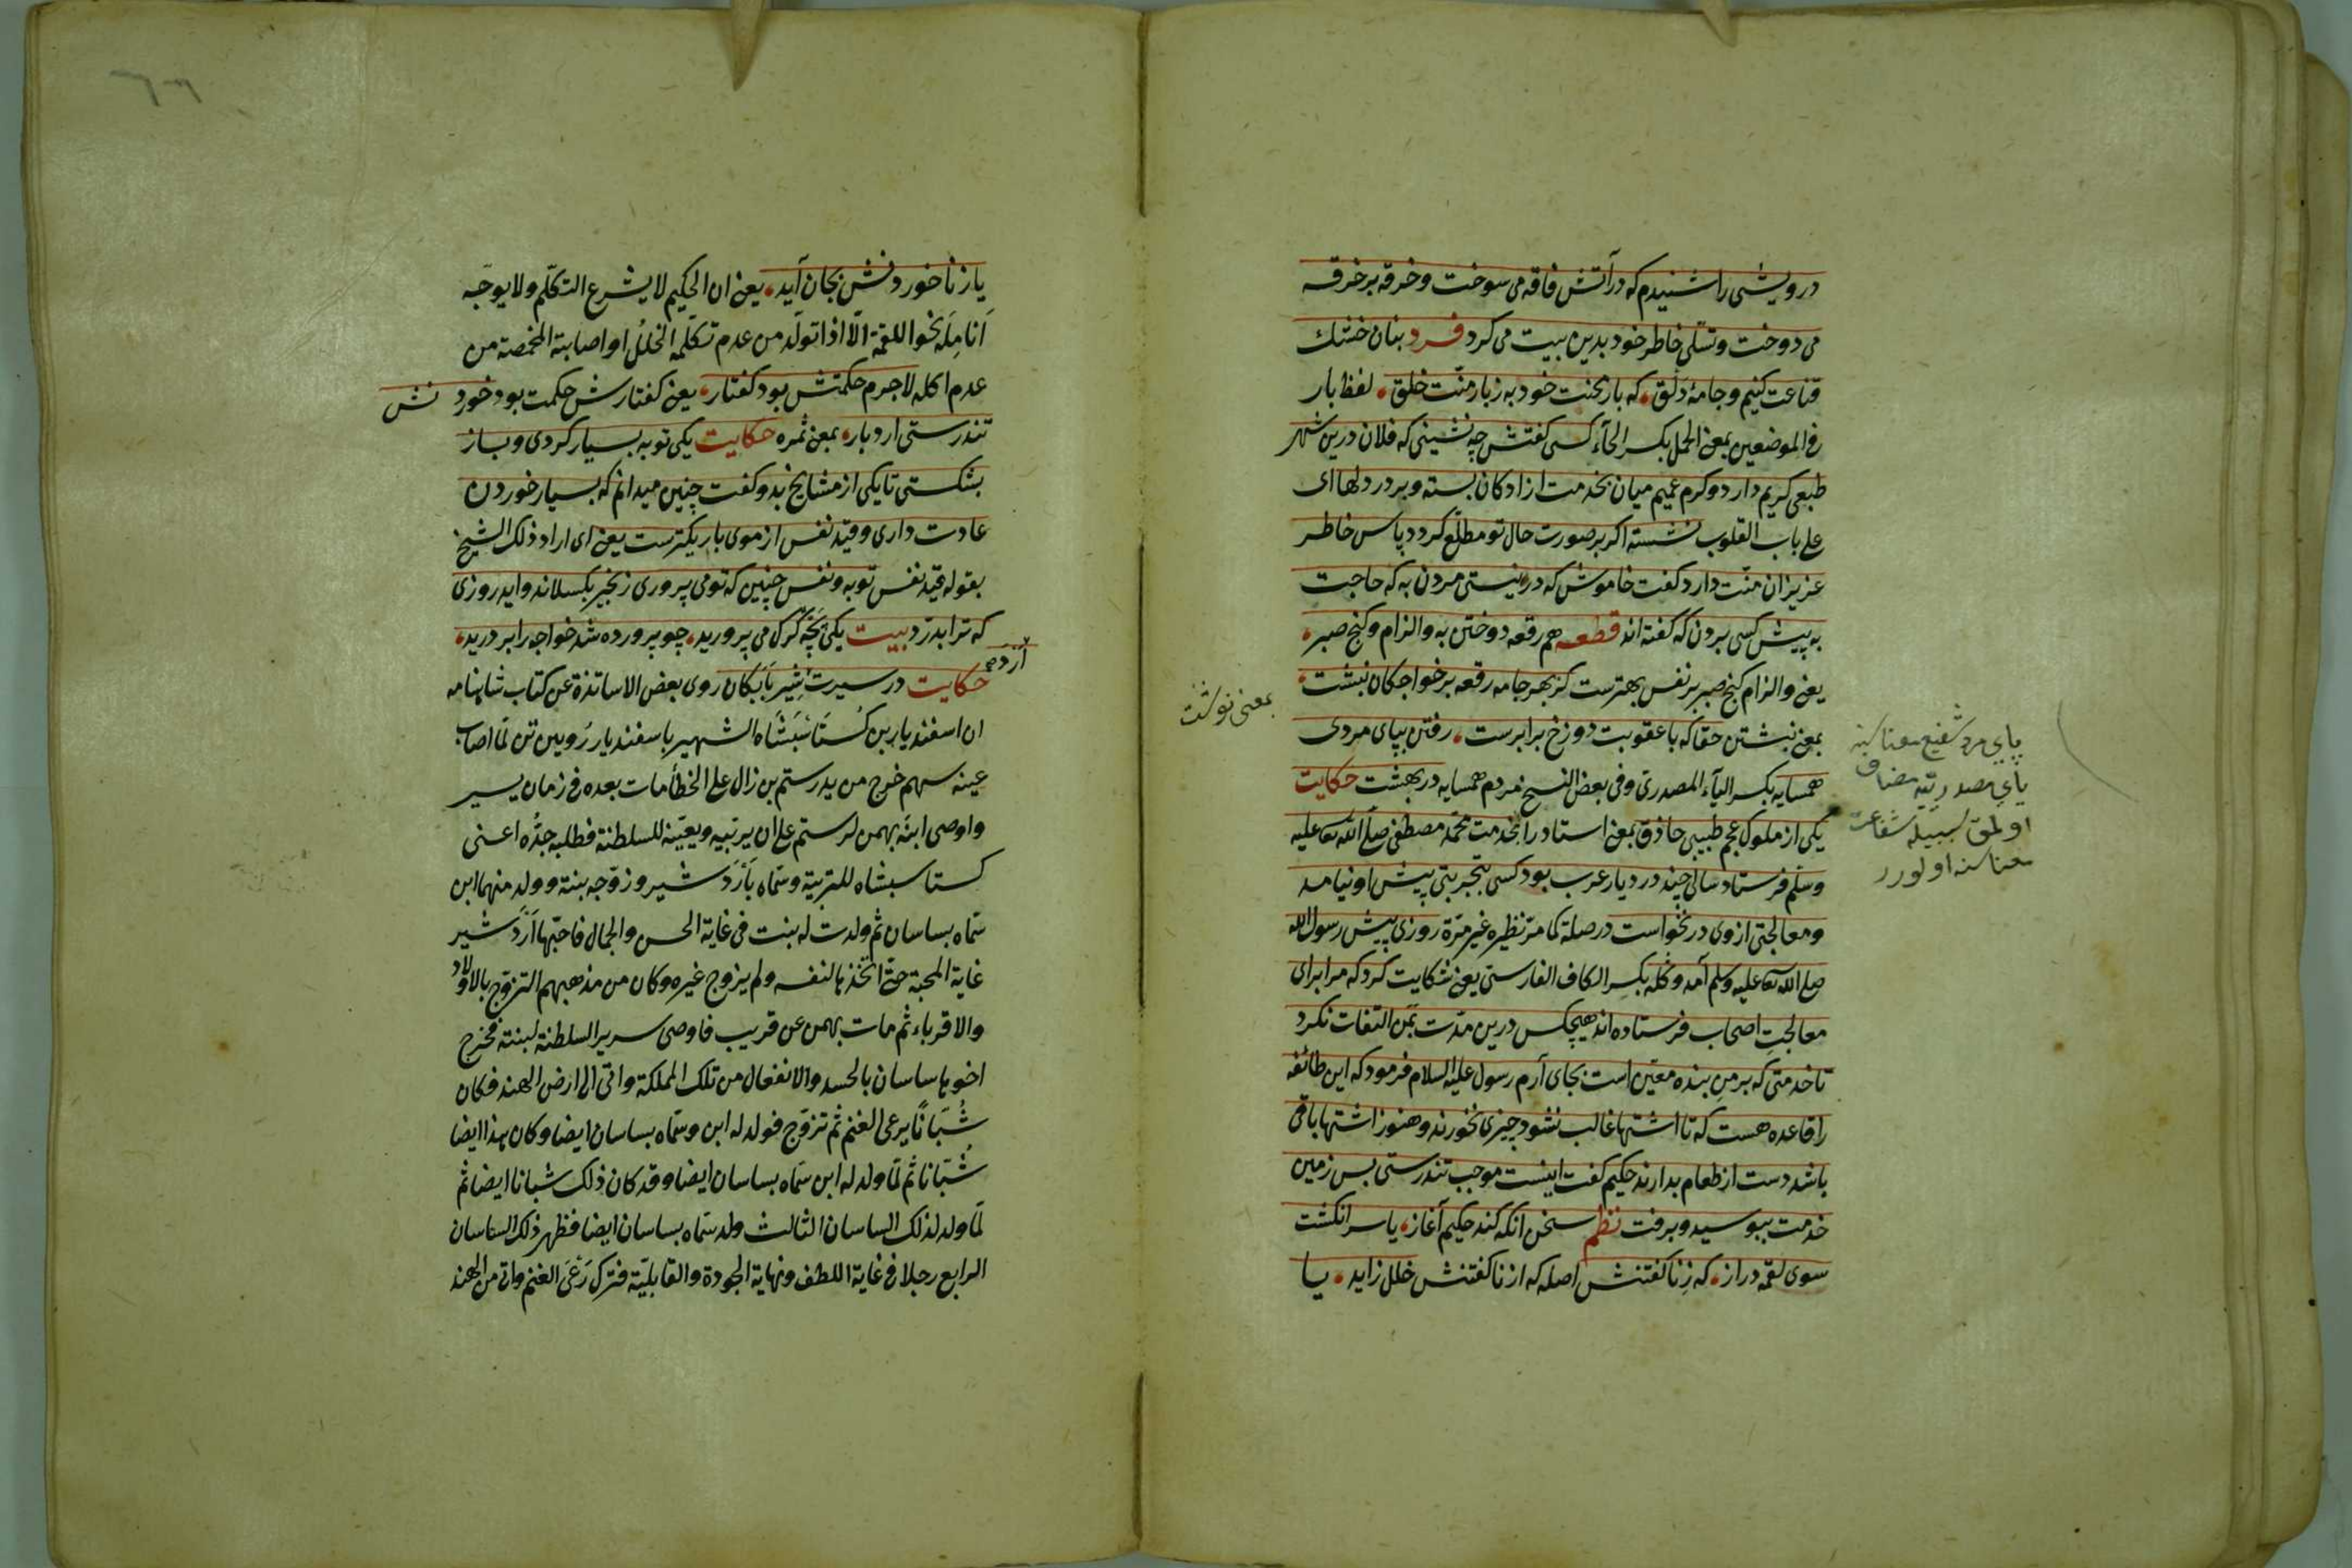 درویشی را شنیدم که در آتش فاقه می سوخت و خرقه بر خرقه
می دوخت و تسلّی خاطر خود بدین بیت می کرد فرد بنان خشك
قناعت کنیم و جامهٔ دلق که بار محنت خود به ز بار منّت خلق لفظ بار
فی الموضعین بمعنی الحمل بکسر الحآء کسی گفتش چه نشینی که فلان درین شهر
طبعی کریم دارد و کرم عمیم میان بخدمت ازادکان بسته و بر در دلها ای
علی باب القلوب نشسته اکر بر صورت حال تو مطلع کردد پاس خاطر
عزیزان منّت دارد کفت خاموش که در نیستی مردن به که حاجت
به پیش کسی بردن که کفته اند قطعه هم رقعه دوختن به و الزام و کنج صبر
یعنی و الزام کنج صبر بر نفس بهترست کز بهر جامه رقعه بر خواجکان نبشت
بمعنی نبشتن حقا که با عقوبت دوزخ برابرست رفتن بپای مردی
همسایه بکسر الیآء المصدری وفی بعض النسخ مردم همسایه در بهشت حکایت
یکی از ملوک عجم طبیبی حاذق بمعنی استاد را بخدمت محمّد مصطفی صلی الله تعا علیه
وسلّم فرستاد سالی چند در دیار عرب بود کسی بتجربتی پیش او نیامد
و معالجتی ازوی درنخواست در صلة کما مرّ نظیره غیر مرّة روزی پیش رسول الله
صلی الله تعا علیه وسلم آمد و کله بکسر الکاف الفارسی یعنی شکایت کرد که مرا برای
معالجتِ اصحاب فرستاده اند هیچکس درین مدّت بمن التفات نکرد
تا خدمتی که بر من بنده معیّن است بجای آرم رسول علیه السلام فرمود که این طائفه
را قاعده هست که تا اشتها غالب نشود چیزی نخورند و هنوز اشتها باقی
باشد دست از طعام بدارند حکیم کفت اینست موجب تندرستی بس زمین
خدمت ببوسید و برفت نظم سخن آنکه کند حکیم آغاز یا سر انکشت
سوی لقمه دراز که زِ ناکفتنش اصله که از ناکفتنش خلل زاید یا
بمعنی نوشت
پای مرد شفیع معناسنه
یای مصدریّه مضاف
اولمق سببیله شفاعت
معناسنه اولور
یا ز ناخوردنش بجان آید یعنی ان الحکیم لا یشرع التکلّم ولا یوجّه
اَنامِلَه نحو اللقمة الّا اذا تولّد من عدم تکلّمه الخلل او اصابته المخمصة من
عدم اکله لاجرم حکمتش بود کفتار یعنی کفتارش حکمت بود خوردنش
تندرستی ارد بار بمعنی ثمره حکایت یکی توبه بسیار کردی و باز
بشکستی تا یکی از مشایخ بدو کفت چنین میدانم که بسیار خوردن
عادت داری و قید نفس از موی باریکترست یعنی ای اراد ذلك الشیخ
بقوله قید نفس توبه و نفس چنین که تو می پروری زنجیر بکسلاند و اید روزی
که ترا بدرّد بیت یکی بچّه کرک می پرورید چو پرورده شد خواجه را بر درید
حکایت در سیرت شیر بابکان روی بعض الاساتذة عن کتاب شاهنامه
اَرْدَ
ان اسفندیار بن کستاسبشاه الشهیر باسفندیار رُویین تن لمّا اصاب
عینه سهم خرج من ید رستم بن زال علی الخطأ مات بعده فی زمان یسیر
واوصی ابنه بهمن لرستم علی ان یربّیه ویعیّنه للسلطنة فطلبه جدُّه اعنی
کستاسبشاه للتربیة وسمّاه باَرْدَشیر وزوّجه بنته وولد منهما ابن
سمّاه بساسان ثم ولدت له بنت فی غایة الحسن والجمال فاحبّها اَرْدَشیر
غایة المحبة حتّی اتّخذها لنفسه ولم یزوج غیره وکان من مذهبهم التزوّج بالاولاد
والاقرباء ثم مات بهمن عن قریب فاوصی سریر السلطنة لبنته فخرج
اخوها ساسان بالحسد والانفعال من تلك المملکة واتی الی ارض الهند فکان
شُبّانًا یرعی الغنم ثم تزوّج فولد له ابن وسمّاه بساسان ایضا وکان هذا ایضا
شُبّانا ثم لمّا ولد له ابن سمّاه بساسان ایضا وقد کان ذلك شبانا ایضا ثم
لمّا ولد لذلك الساسان الثالث ولد سمّاه بساسان ایضا فظهر ذلك الساسان
الرابع رجلا فی غایة اللطف ونهایة الجودة والقابلیّة فترك رَعْیَ الغنم واتی من الهند